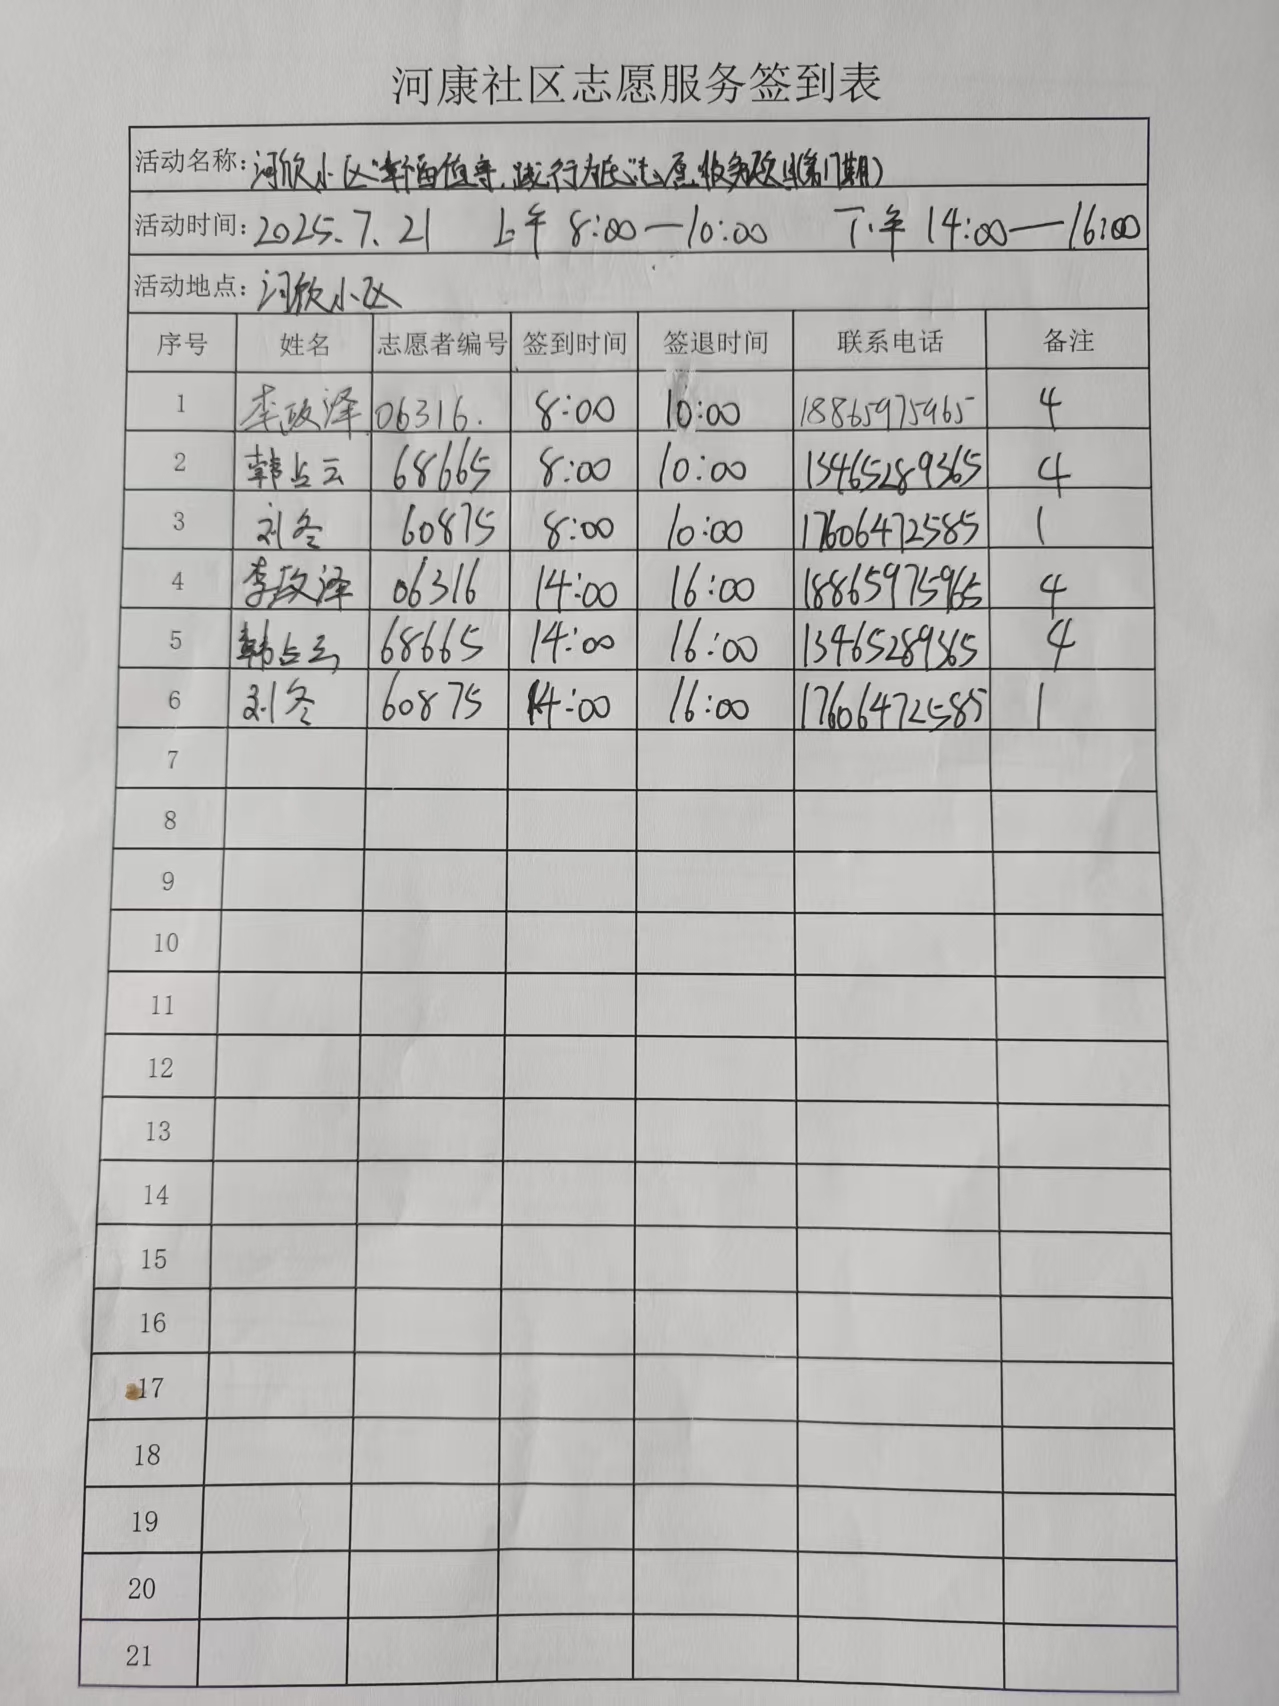 河康社区志愿服务签到表
活动名称: 河欣小区"幸福值守,践行为民"志愿服务项目(第17期)
活动时间: 2025.7.21 上午 8:00—10:00 下午 14:00—16:00
活动地点: 河欣小区
序号 姓名 志愿者编号 签到时间 签退时间 联系电话 备注
1 李政泽 06316. 8:00 10:00 18865975965 4
2 韩占云 68665 8:00 10:00 13465289365 4
3 刘冬 60875 8:00 10:00 17606472585 1
4 李政泽 06316 14:00 16:00 18865975965 4
5 韩占云 68665 14:00 16:00 13465289365 4
6 刘冬 60875 14:00 16:00 17606472585 1
7
8
9
10
11
12
13
14
15
16
17
18
19
20
21